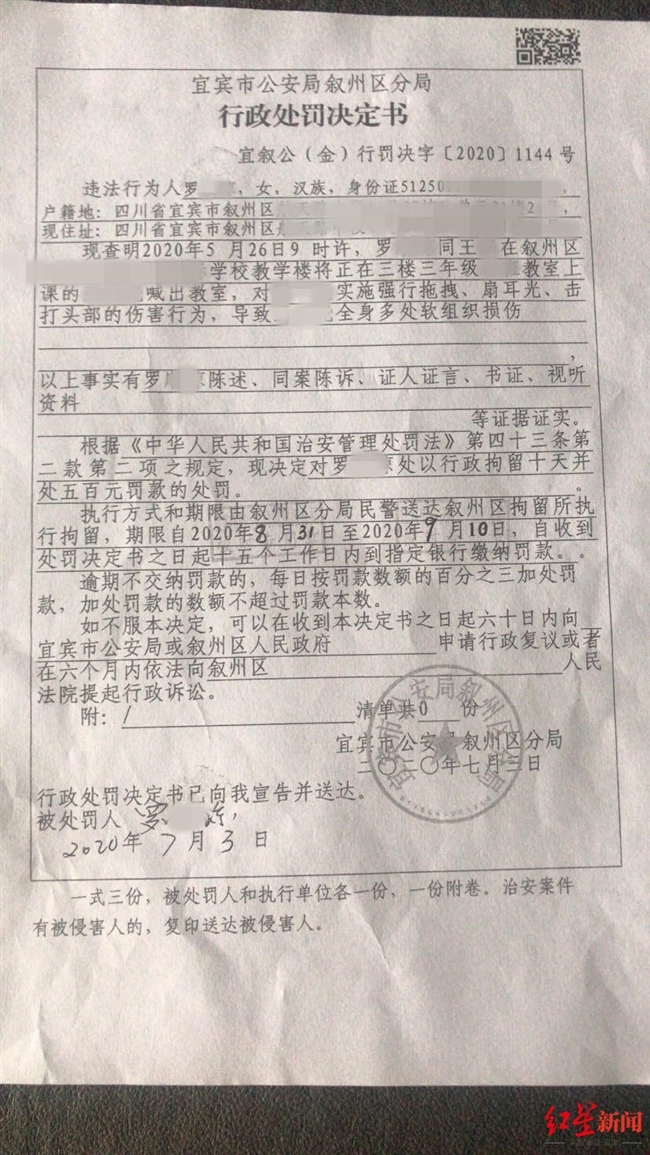 宜宾市公安局叙州区分局
行政处罚决定书
宜叙公（金）行罚决字〔2020〕1144号
违法行为人罗 ，女，汉族，身份证51250
户籍地：四川省宜宾市叙州区
现住址：四川省宜宾市叙州区
现查明2020年5月26日9时许，罗 同王 在叙州区
学校教学楼将正在三楼三年级 教室上
课的 喊出教室，对 实施强行拖拽、扇耳光、击
打头部的伤害行为，导致 全身多处软组织损伤
，
以上事实有罗 陈述、同案陈诉、证人证言、书证、视听
资料
等证据证实。
根据《中华人民共和国治安管理处罚法》第四十三条第
二款第二项之规定，现决定对罗 处以行政拘留十天并
处五百元罚款的处罚。 。
执行方式和期限由叙州区分局民警送达叙州区拘留所执
行拘留，期限自2020年8月31日至2020年9月10日，自收到
处罚决定书之日起十五个工作日内到指定银行缴纳罚款。。
逾期不交纳罚款的，每日按罚款数额的百分之三加处罚
款，加处罚款的数额不超过罚款本数。
如不服本决定，可以在收到本决定书之日起六十日内向
宜宾市公安局或叙州区人民政府 申请行政复议或者
在六个月内依法向叙州区 人民
法院提起行政诉讼。
附：/ 清单共0 份
宜宾市公安局叙州区分局
二〇二〇年七月三日
宜宾市公安局叙州区分局
行政处罚决定书已向我宣告并送达。
被处罚人 罗
2020年7月3日
一式三份，被处罚人和执行单位各一份，一份附卷。治安案件
有被侵害人的，复印送达被侵害人。
红星新闻